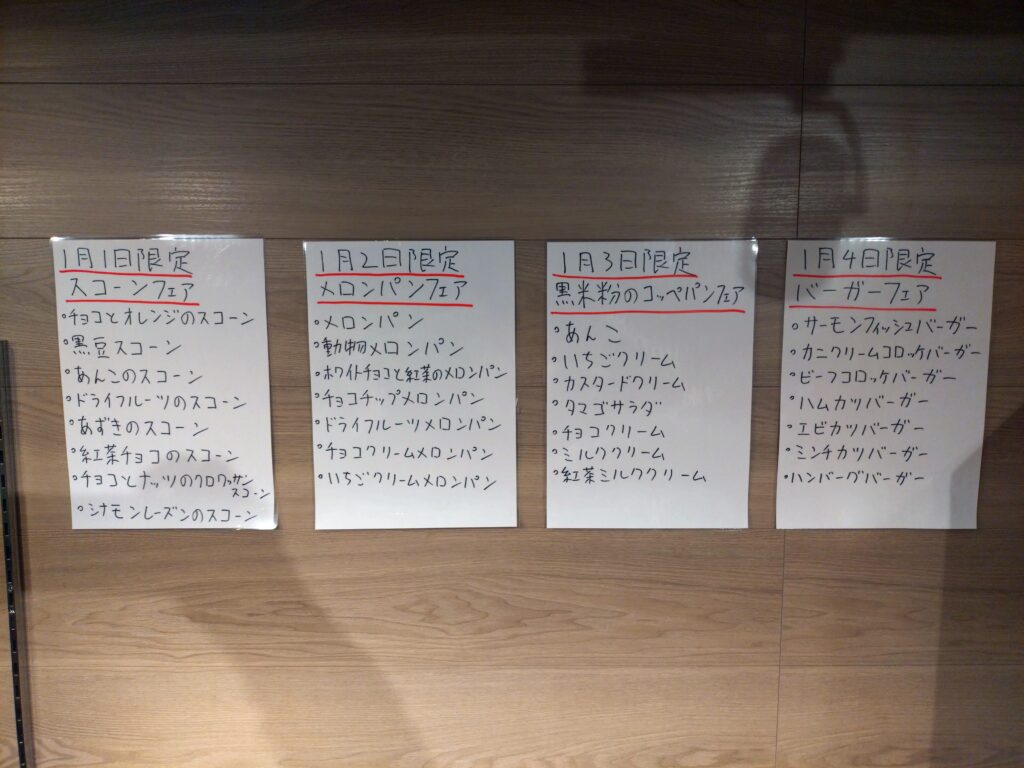 1月1日限定
スコーンフェア
°チョコとオレンジのスコーン
°黒豆スコーン
°あんこのスコーン
°ドライフルーツのスコーン
°あずきのスコーン
°紅茶チョコのスコーン
°チョコとナッツのクロワッサン
スコーン
°シナモンレーズンのスコーン
1月2日限定
メロンパンフェア
°メロンパン
°動物メロンパン
°ホワイトチョコと紅茶のメロンパン
°チョコチップメロンパン
°ドライフルーツメロンパン
°チョコクリームメロンパン
°いちごクリームメロンパン
1月3日限定
黒米粉のコッペパンフェア
°あんこ
°いちごクリーム
°カスタードクリーム
°タマゴサラダ
°チョコクリーム
°ミルククリーム
°紅茶ミルククリーム
1月4日限定
バーガーフェア
°サーモンフィッシュバーガー
°カニクリームコロッケバーガー
°ビーフコロッケバーガー
°ハムカツバーガー
°エビカツバーガー
°ミンチカツバーガー
°ハンバーグバーガー